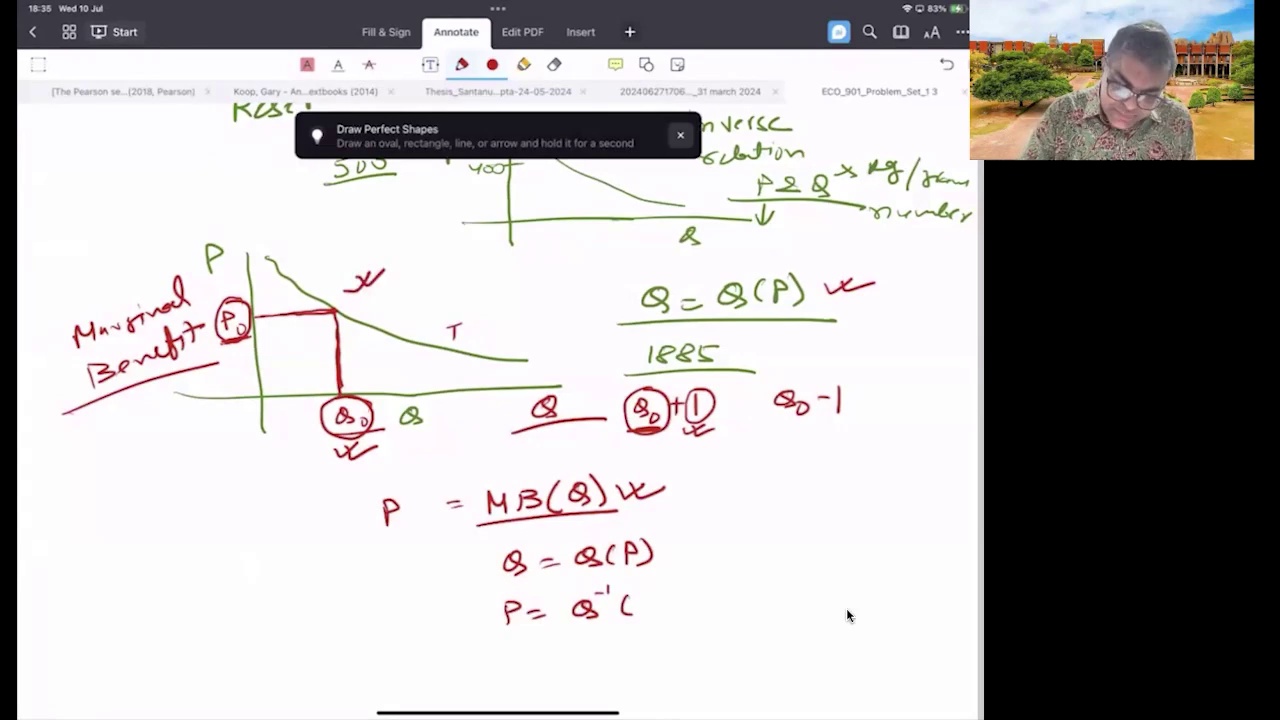 18:35 Wed 10 Jul
83%
Start
Fill & Sign Annotate Edit PDF Insert
[The Pearson se...(2018, Pearson) Koop, Gary - An...extbooks (2014) Thesis_Santanu...pta-24-05-2024 202406271706..._31 march 2024 ECO_901_Problem_Set_1 3
Draw Perfect Shapes
Draw an oval, rectangle, line, or arrow and hold it for a second
nverse
relation
500
400
P & Q
number
Q
P
Marginal
Benefit
P0
Q0 Q
Q = Q(P)
1885
Q Q0 + 1 Q0 - 1
P = MB(Q)
Q = Q(P)
P = Q⁻¹(